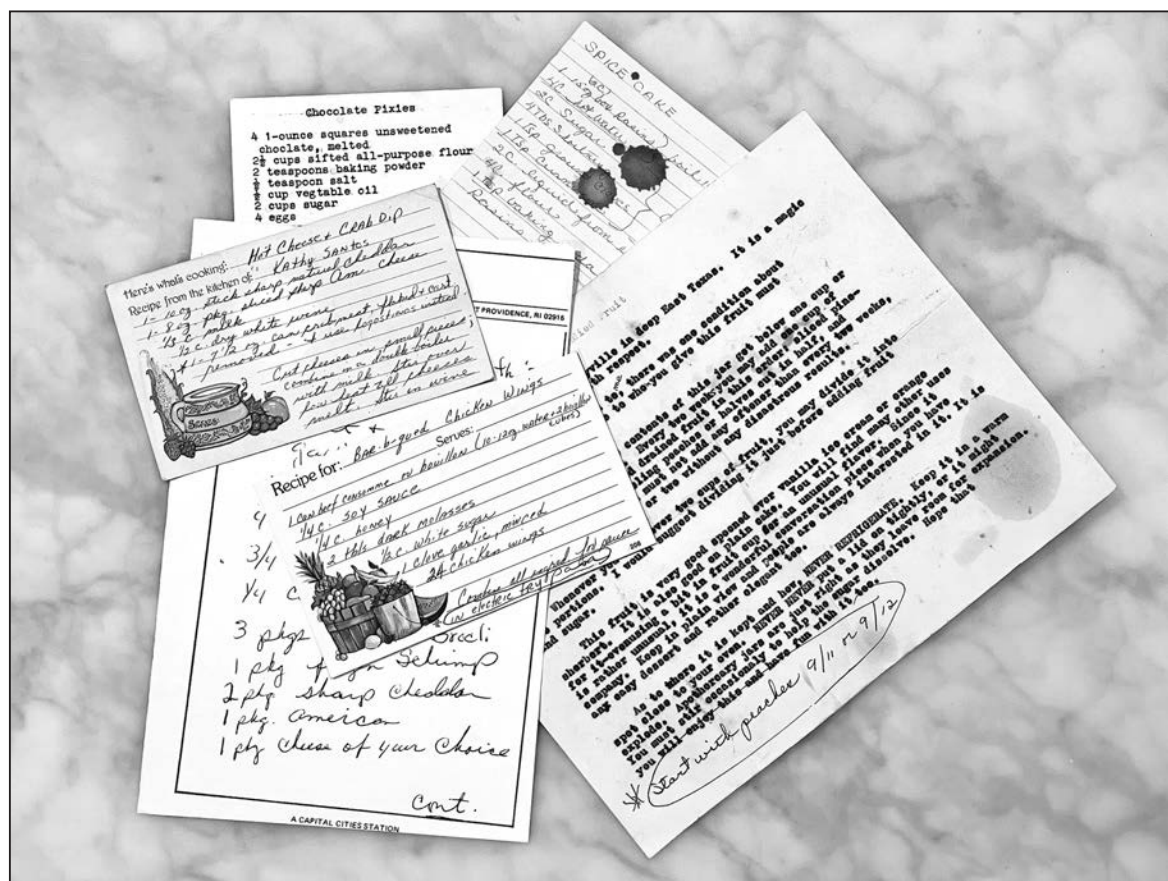 Chocolate Pixies
4 1-ounce squares unsweetened
choclate, melted
2½ cups sifted all-purpose flour
2 teaspoons baking powder
½ teaspoon salt
½ cup vegtable oil
2 cups sugar
4 eggs
SPICE CAKE
1 15 oz box Raisins
4C hot water
2C Sugar
4 Tbs Shortening
1 Tsp
1 Tsp
2C liquid from
4C flour
1 Tsp baking
Raisins
Here's what's cooking: Hot Cheese & CRAB Dip
Recipe from the kitchen of: KAthy SANtos
1- 10 oz. stick sharp natural Cheddar
1- 8 oz. pkg. sliced sharp Am. cheese
1/3 c. milk
1/2 c. dry white wine
* 1- 7 1/2 oz. can crabmeat, flaked + cart
removed - I use langostinos instead.
Cut cheeses in small pieces;
combine in a double boiler
with milk. Stir over
low heat till cheeses
melt. Stir in wine
Serves:
PROVIDENCE, RI 02915
Recipe for: BAR-b-qued Chicken Wings
Serves:
1 can beef consomme or bouillon (10-12oz water + 2 bouillon
cubes)
1/4 c. SOY SAUCE
1/4 c. honey
2 tbls dark molasses
1/2 c. white sugar
1 clove garlic, minced
24 chicken wings
Combine all ingred. for sauce
in electric frypan
4
3/4
1/4 C.
3 pkgs
1 pkg Shrimp
2 pkg. sharp cheddar
1 pkg. american
1 pkg cheese of your choice
cont.
A CAPITAL CITIES STATION
ried fruit
ville in Deep East Texas. It is a magic
th respect.
to, there was one condition about
to who-you give this fruit must
contents of this jar get below one cup or
Every two weeks you add one cup of
dried fruit in this order: sliced pine-
ling peaches or halves cut in half, and
must not add any oftener than every two weeks,
or two without any disastrous results.
Whenever you have over two cups of fruit, you may divide it into
portions. I would suggest dividing it just before adding fruit
and sugar.
This fruit is very good spooned over vanilla ice cream or orange
sherbert. It is also good over plain cake. You will find many other uses
for it-even using a bit in fruit cup for an unusual flavor. Since it
is rather unusual, it is a wonderful conversation piece when you have
company. Keep in plain view and people are always interested in it. It is
any easy dessert and rather elegant too.
As to where it is kept and how, NEVER NEVER REFRIGERATE. Keep it in a warm
spot close to your oven. NEVER NEVER put a lid on tightly, or it might
explode. Apothecary jars are just right as they leave room for expansion.
You must stir occasionally to help the sugar disolve. Hope that
you will enjoy this and have fun with it too.
* Start with peaches 9/11 or 9/12